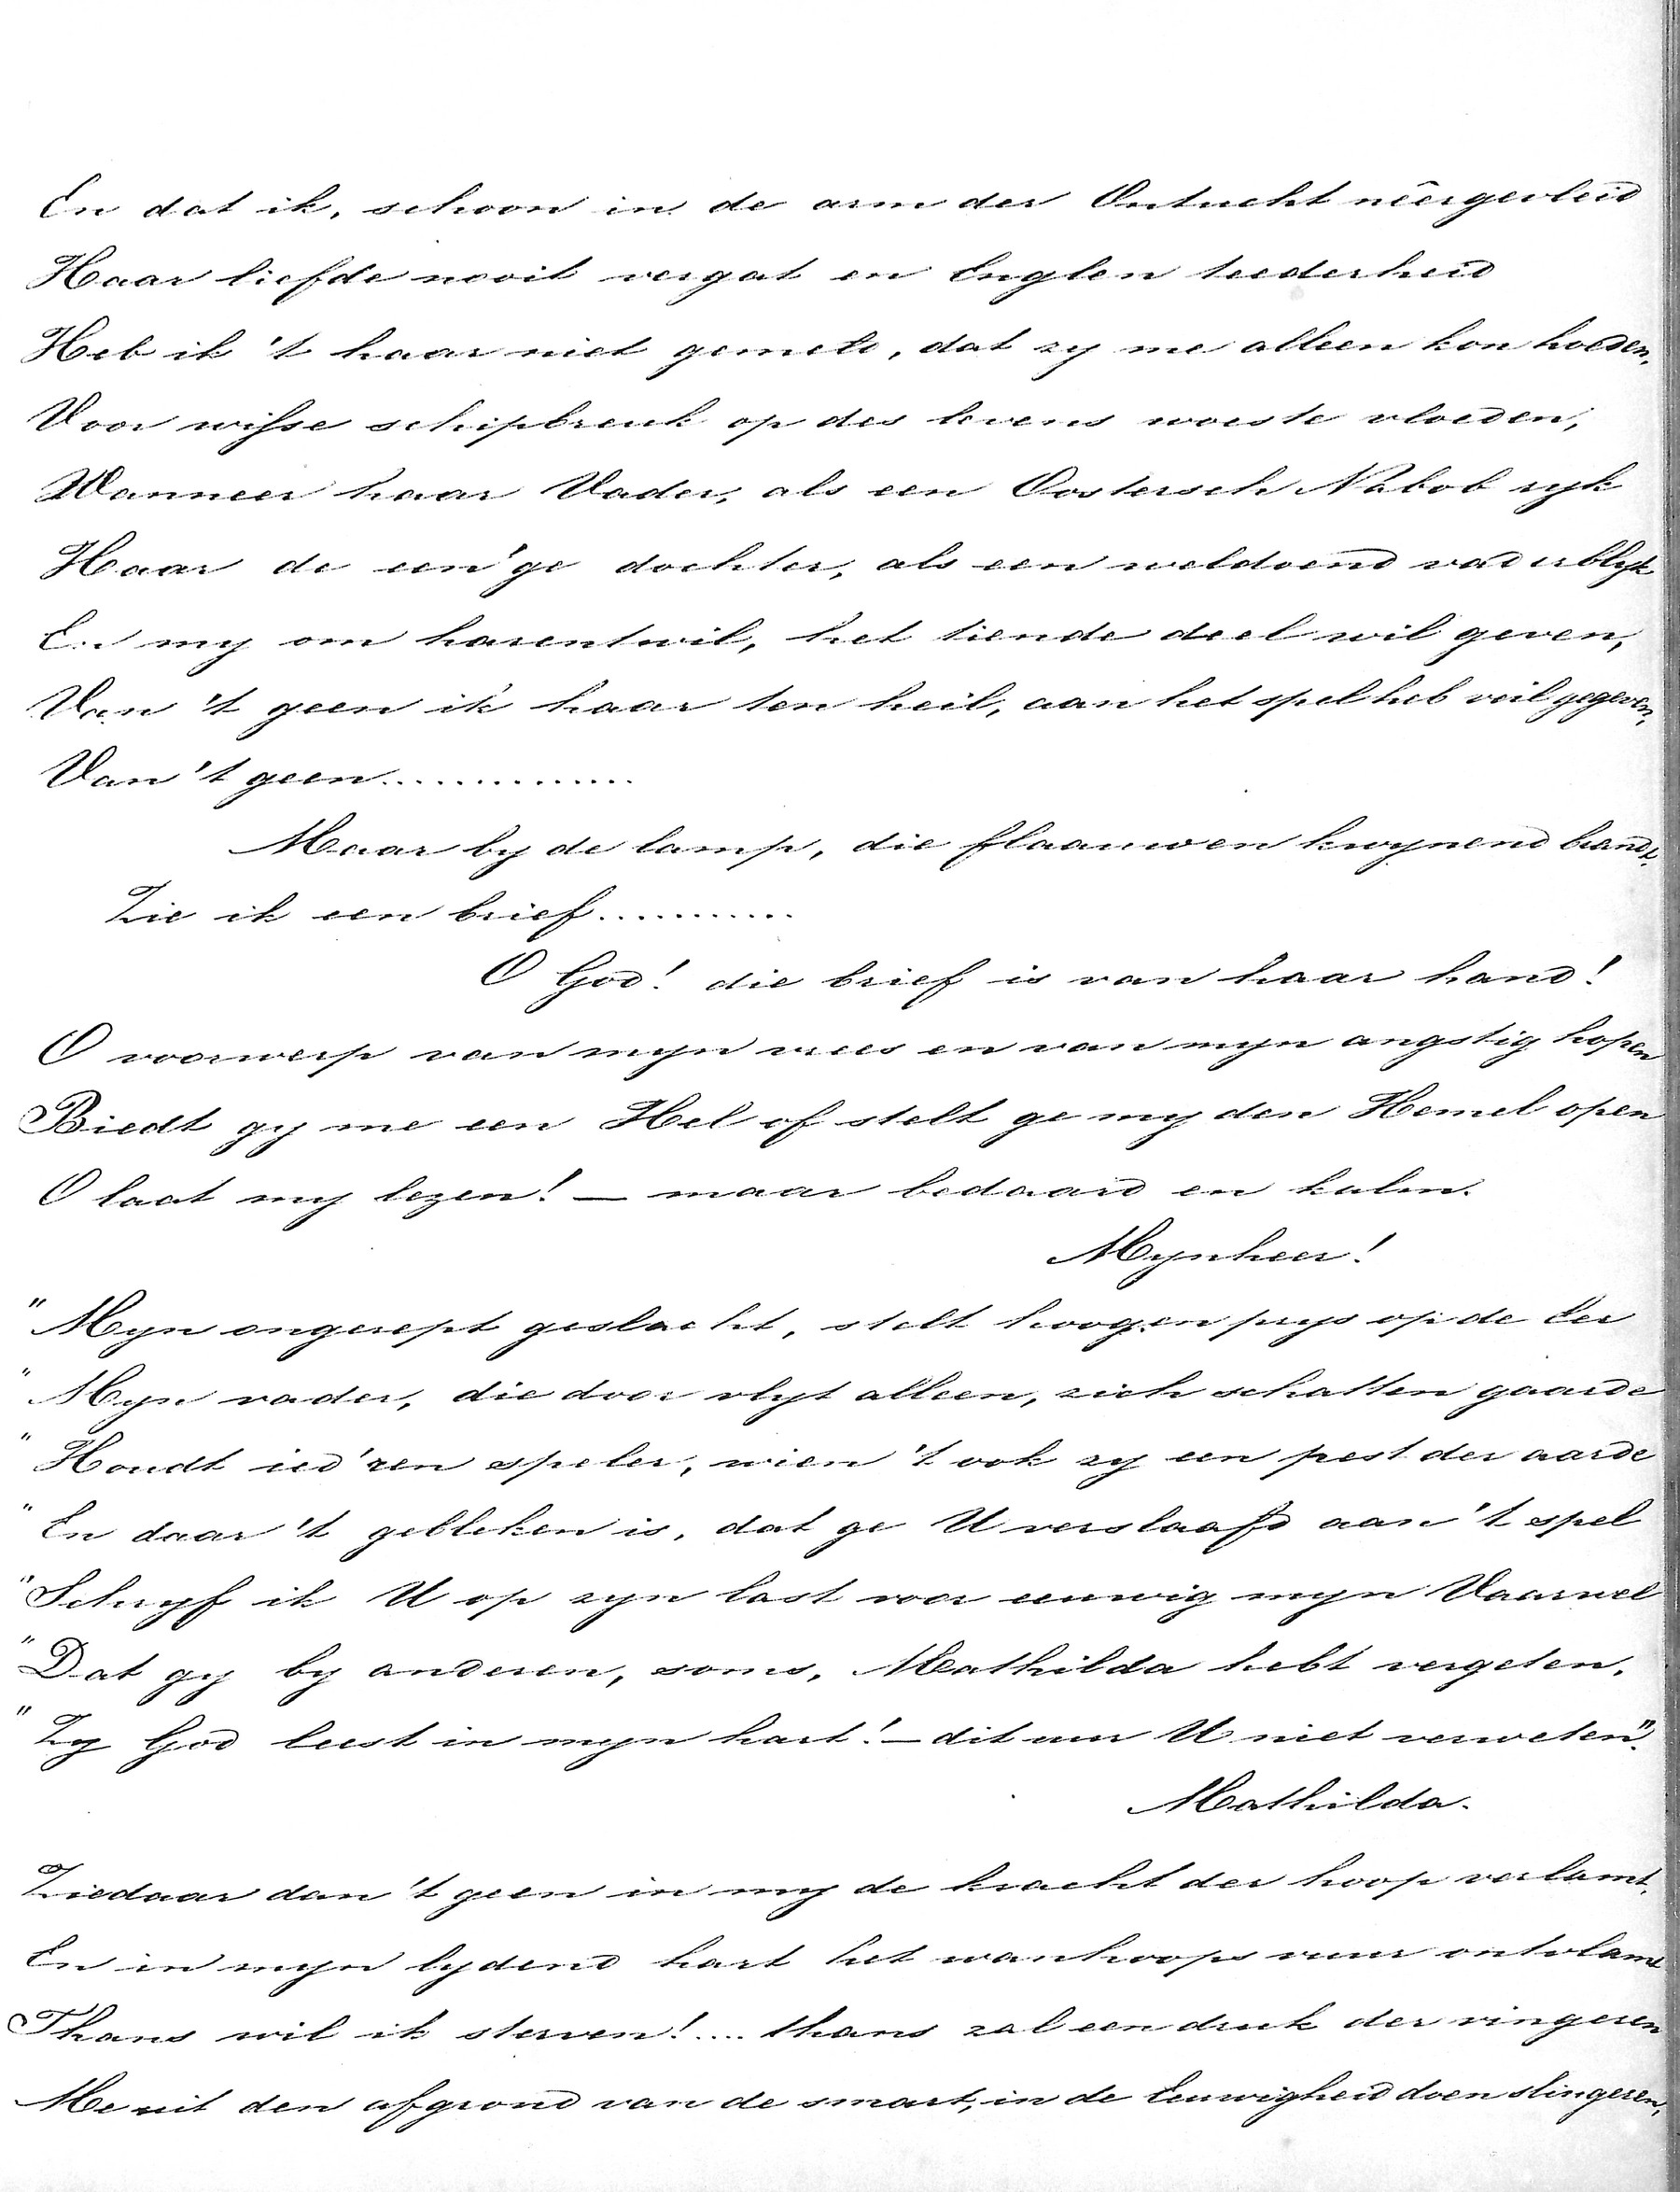 En dat ik, schoon in de arm der Ontucht nêergevleid
Haar liefde nooit vergat en Englen teederheid
Heb ik 't haar niet gemeld, dat zy me alleen kon hoeden,
Voor wisse schipbreuk op des levens woeste vloeden,
Wanneer haar Vader, als een Oostersch Nabob ryk
Haar de een'ge dochter, als een weldoend vaderblyk
En my om harentwil, het tiende deel wil geven,
Van 't geen ik haar ten heil, aan het spel heb veil gegeven,
Van 't geen..............
Maar by de lamp, die flaauw en kwynend brandt.
Zie ik een brief...........
O God! die brief is van haar hand!
O voorwerp van myn vrees en van myn angstig hopen
Biedt gy me een Hel of stelt ge my den Hemel open
O laat my lezen! — maar bedaard en kalm.
Mynheer!
"Myn ongerept geslacht, stelt hoogen prys op de Eer
"Myn vader, die door vlyt alleen, zich schatten gaarde
"Houdt ied'ren speler, wien 't ook zy een pest der aarde
"En daar 't gebleken is, dat ge U verslaafd aan 't spel
"Schryf ik U op zyn last voor eeuwig myn Vaarwel
"Dat gy by anderen, soms, Mathilda hebt vergeten,
"Zy God leest in myn hart! — dit uur U niet verweten".
Mathilda.
Ziedaar dan 't geen in my de kracht der hoop verlamt,
En in myn lydend hart het wanhoops vuur ontvlamt
Thans wil ik sterven!.... thans zal een druk der vingeren
Me uit den afgrond van de smart, in de Eeuwigheid doen slingeren,